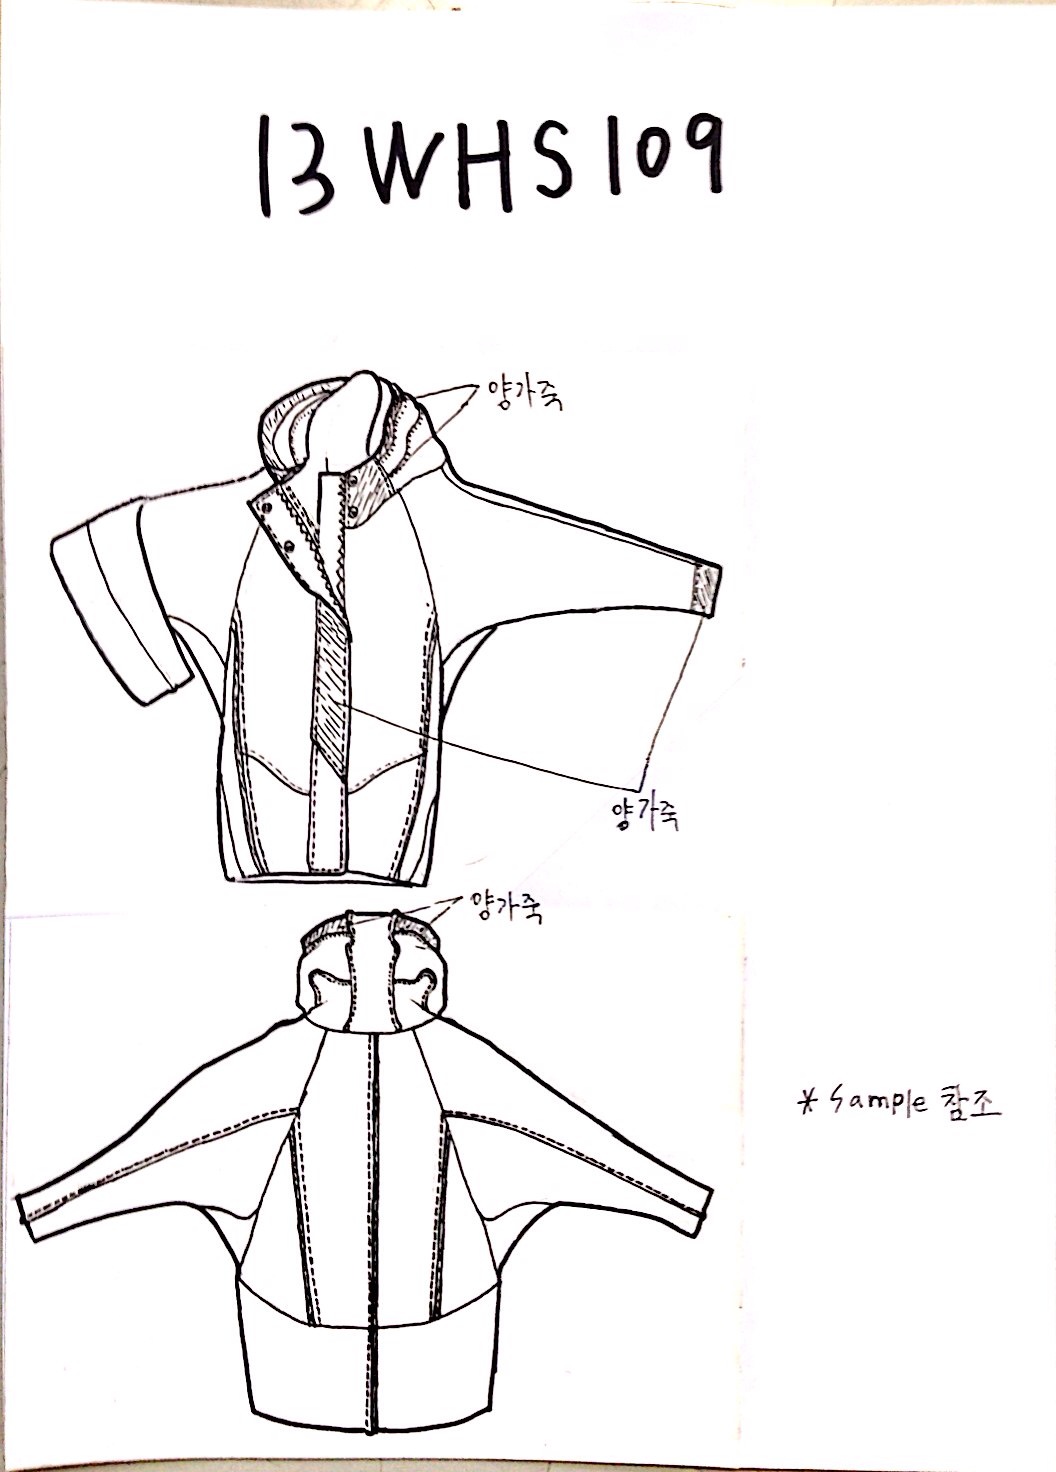 13WHS109
양가죽
양가죽
양가죽
* Sample 참조